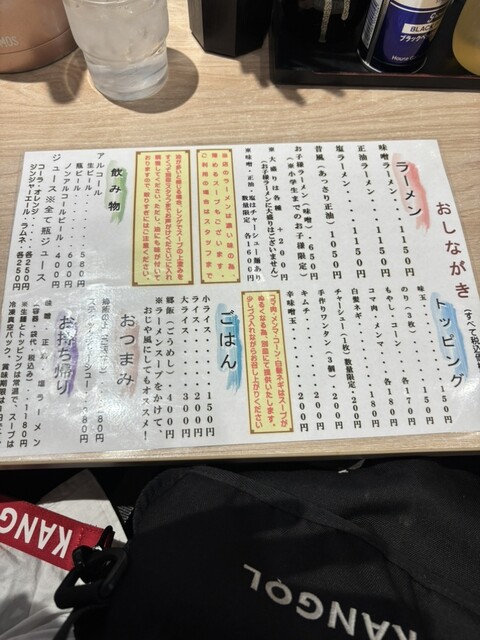 おしながき
(すべて税込価
ラーメン
味噌ラーメン・・・1150円
正油ラーメン・・・1150円
塩ラーメン・・・・1150円
昔風(あっさり正油)・1050円
お子様ラーメン(味噌)・650円
(※小学生までのお子様限定)
※大盛りは各種 +200円
(お子様ラーメンに大盛りはございません)
※味噌・正油・塩はチャーシュー麺あり
数量限定・・・・・各1660円
当店のラーメンは濃い味の為、
薄めるスープもございます。
ご利用の場合はスタッフまで
飲み物
アルコール
生ビール・・・580円
瓶ビール
ノンアルコールビール・・400円
ジュース※全て瓶ジュース
コーラ・オレンジ・・・・各250円
ジンジャーエール・ラムネ・各250円
トッピング
味玉・・・・・・150円
のり(3枚)・・・150円
もやし、コーン・・各170円
コマ肉、メンマ・・各180円
白髪ネギ・・・・・180円
チャーシュー(1枚)数量限定・200円
手作りワンタン(3個)・・200円
キムチ・・・・・200円
辛味噌玉・・・・200円
コマ肉・メンマ・コーン・白髪ネギはスープが
ぬるくなる為、別皿にて提供いたします。
少しづつ入れながらお召し上がりください
ごはん
小ライス・・・・150円
中ライス・・・・200円
大ライス・・・・300円
郷飯(ごうめし)・・400円
※ラーメンスープをかけて、
おじや風にしてもオススメ!
おつまみ
お持ち帰り
味噌・正油・塩ラーメン
(容器・袋代・税込み)・・1180円
※生麺とトッピングは常温で、スープは
BLACK
ブラックペ
House
KANGOL
KANG